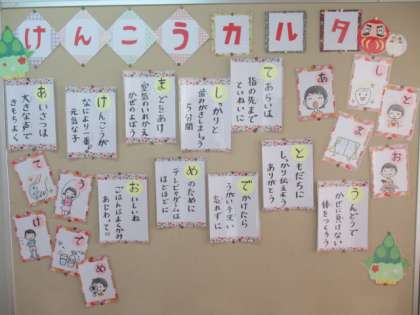 けんこうカルタ
てあらいは
指の先まで
ていねいに
しっかりと
歯みがきしましょう
5分間
まどをあけ
空気のいれかえ
かぜのよぼう
けんこうが
なにより一番
元気な子
あいさつは
大きな声で
きもちよく
うんどうで
かぜに負けない
体をつくろう
ともだちに
しっかり伝えよう
ありがとう
でかけたら
うがい手洗い
忘れずに
めのために
テレビやゲームは
ほどほどに
おいしいね
ごはんはよくかみ
あじわって
し
あ
ま
お
て
う
け
で
め